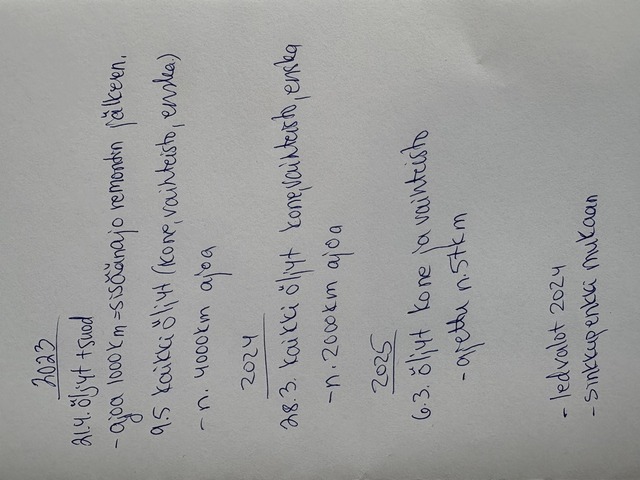 2023
21.4. öljyt + suod
- ajoa 1000km = sisäänajo remontin jälkeen.
9.5 kaikki öljyt (kone, vaihteisto, enska)
- n. 4000km ajoa
2024
28.3. kaikki öljyt kone, vaihteisto, enska
- n. 2000km ajoa
2025
6.3. öljyt kone ja vaihteisto
- ajettu n. 5tkm
- ledvalot 2024
- sinkkupenkki mukaan